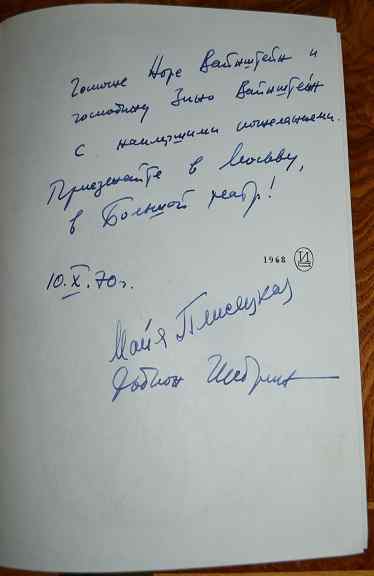 Госпоже Норе Вайнштейн и
господину Зино Вайнштейн
с наилучшими пожеланиями.
Приезжайте в Москву,
в Большой театр!
1968 И
10.X.70 г.
Майя Плисецкая
Родион Щедрин